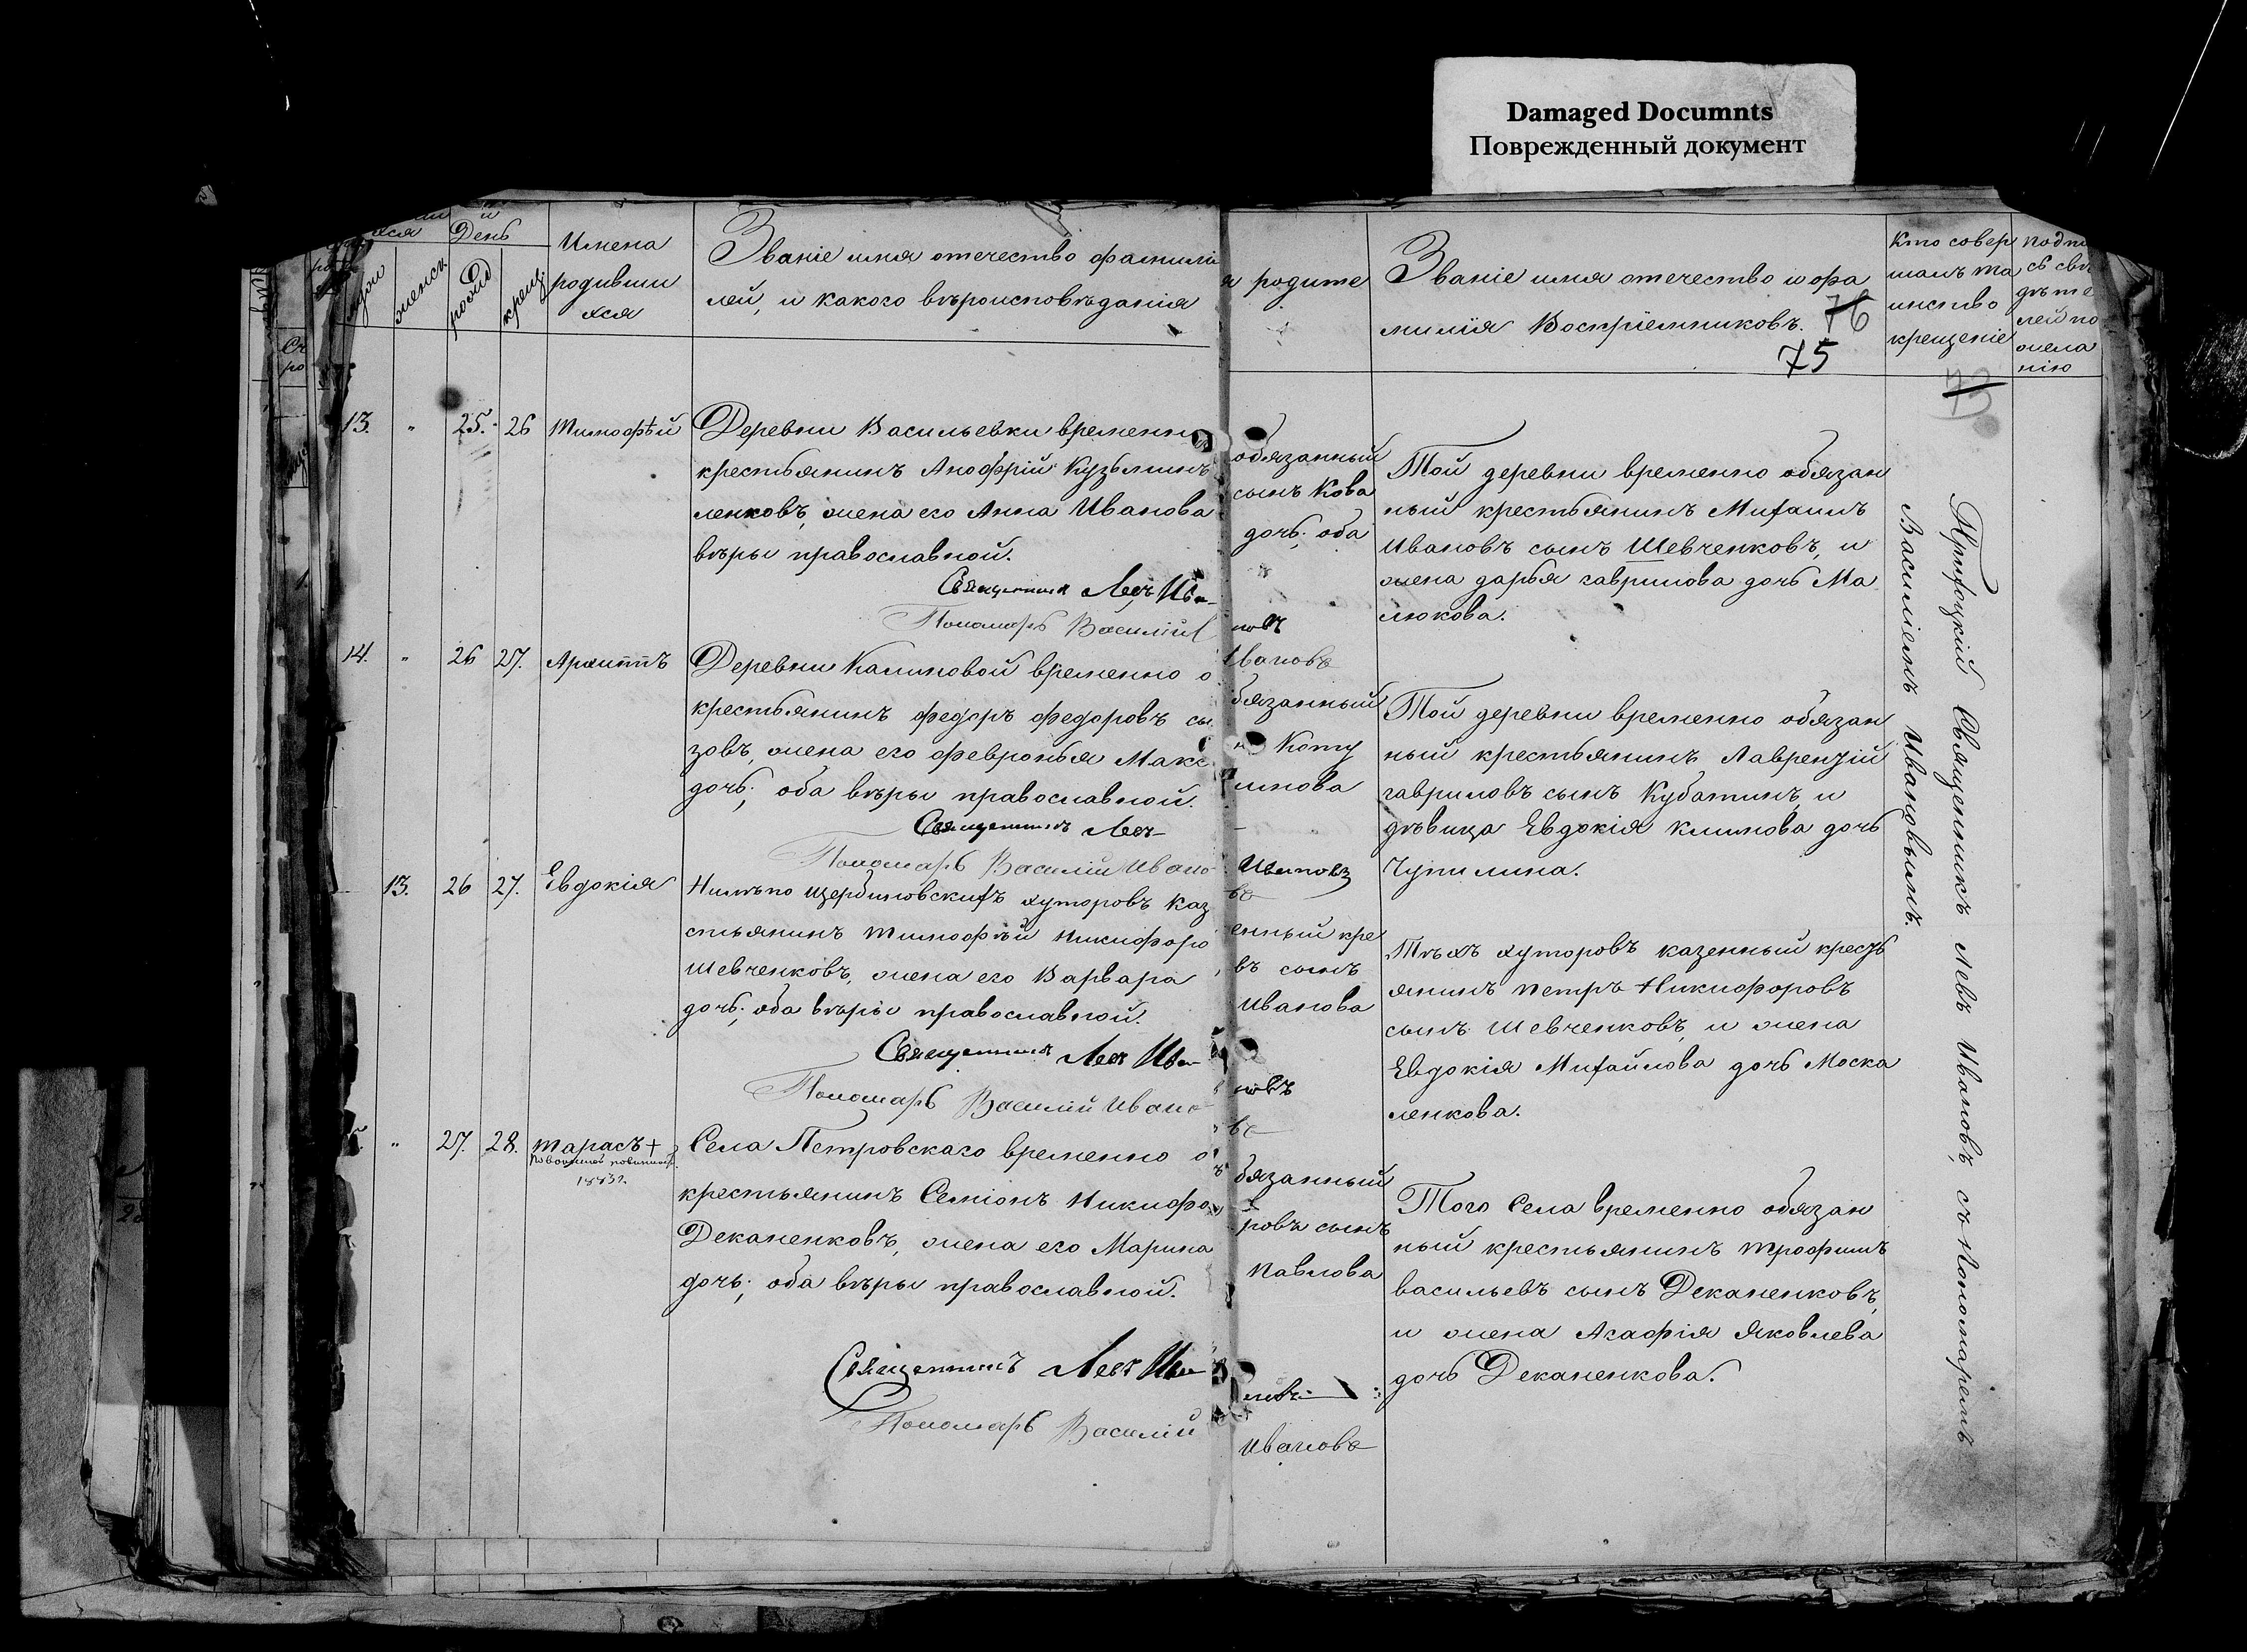 Damaged Documnts
Поврежденный документ
День
рожд
крещ.
женск
Имена
родивши
хся
Званіе имя отечество фамилі
я родите
лей, и какого вѣроисповѣданія
Званіе имя отечество и фа
милія Воспріемниковъ.
76
75
Кто совер
шалъ та
инство
крещеніе
подпи
сь сви
дѣте
лей по
жела
нію
13. " 25. 26 Тимофѣй
Деревни Васильевки временно
обязанный
крестьянинъ Анофрій Кузьминъ
сынъ Кова
ленковъ, жена его Анна Иванова
дочь; оба
вѣры православной.
Священникъ Левъ Ива-
новъ
Пономарь Василій И
вановъ
Той деревни временно обязан
ный крестьянинъ Михаилъ
Ивановъ сынъ Шевченковъ, и
жена дарья гаврилова дочь Ма
люкова.
14. " 26 27.
Деревни Калиновой временно о
бязанный
крестьянинъ федоръ федоровъ сы
Кому
зовъ, жена его февронья Макс
имова
дочь; оба вѣры православной.
Священникъ Левъ
Ивановъ
Пономарь Василій Ивано
въ
Той деревни временно обязан
ный крестьянинъ Лаврентій
гавриловъ сынъ Кубатинъ, и
дѣвица Евдокія Климова дочь
Чупилина.
13. 26 27. Евдокія
Щербиновскихъ хуторовъ каз
енный кре
стьянинъ Тимофѣй Никифоро
въ сынъ
Шевченковъ, жена его Варвара
Иванова
дочь; оба вѣры православной.
Священникъ Левъ Ива
новъ
Пономарь Василій Ивано
въ
Тѣхъ хуторовъ казенный кресть
янинъ Петръ Никифоровъ
сынъ Шевченковъ, и жена
Евдокія Михайлова дочь Моска
ленкова.
" 27. 28. Тарасъ +
1883г.
Села Петровскаго временно о
бязанный
крестьянинъ Семіонъ Никифо
ровъ сынъ
Деканенковъ, жена его Марина
Павлова
дочь; оба вѣры православной.
Священникъ Левъ Ива
новъ
Пономарь Василій
Ивановъ
Того Села временно обязан
ный крестьянинъ Трофимъ
васильевъ сынъ Деканенковъ,
и жена Агафія Яковлева
дочь Деканенкова.
Священникъ Левъ Ивановъ, съ Пономаремъ
Василіемъ Ивановымъ.